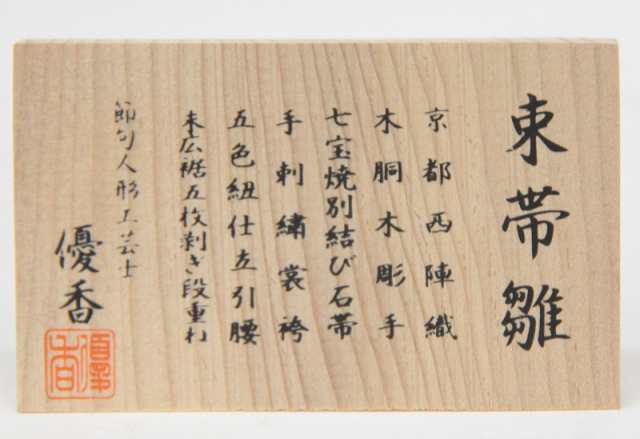 束帯雛
京都西陣織
木胴木彫手
七宝焼別結び石帯
手刺繍裳袴
五色紐仕立引腰
末広裾五枚剥ぎ段重ね
節句人形工芸士
優香
優香